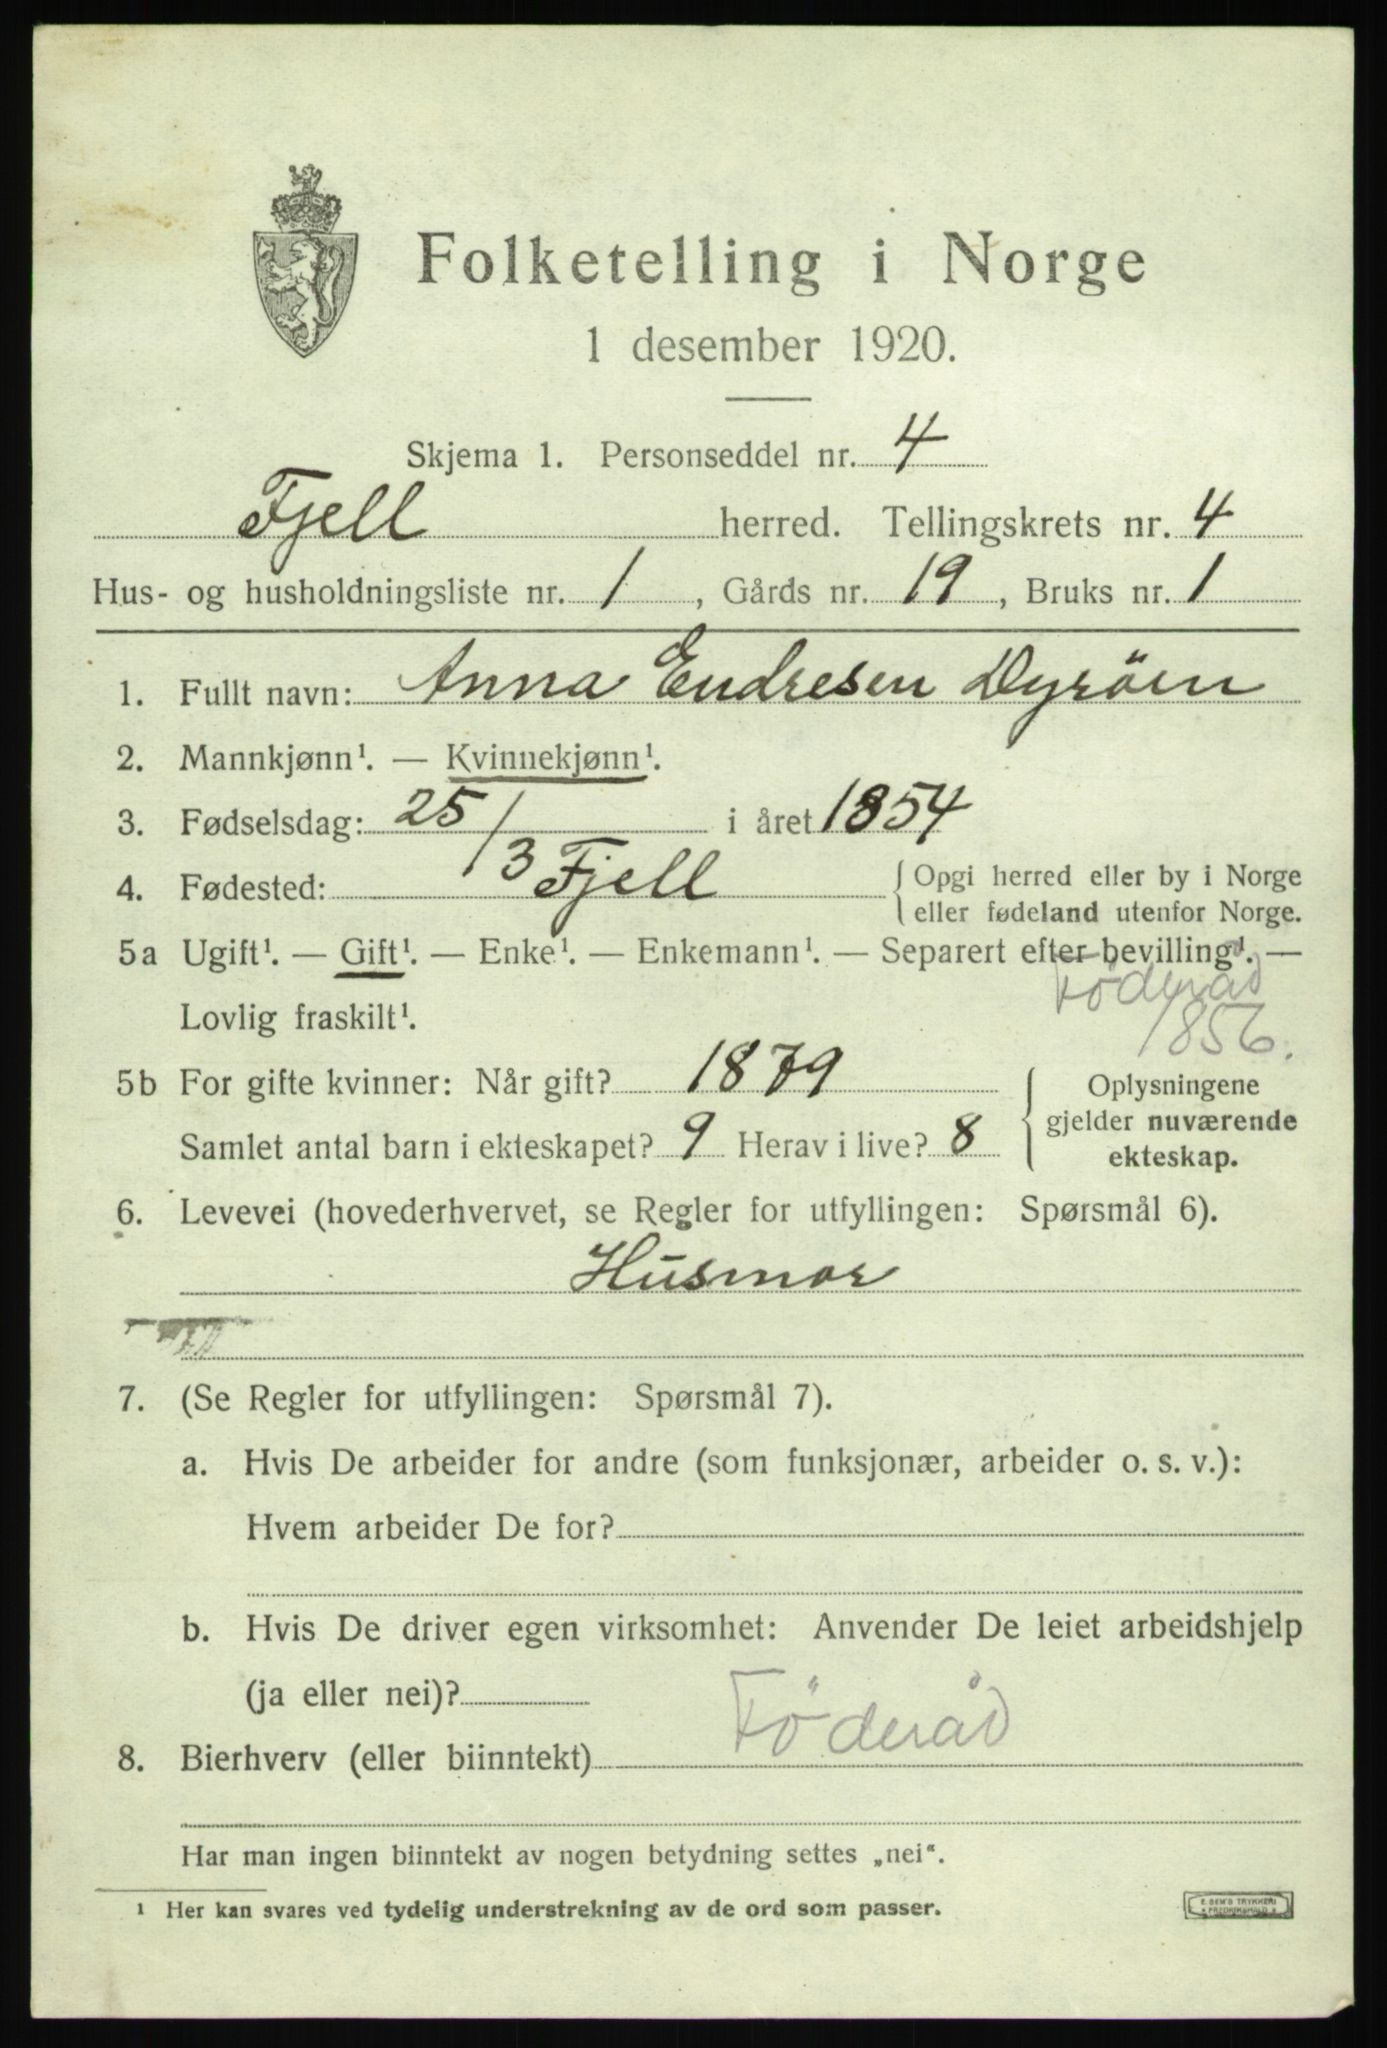 Folketelling i Norge
1 desember 1920.
Skjema 1. Personseddel nr. 4
Fjell herred. Tellingskrets nr. 4
Hus- og husholdningsliste nr. 1, Gårds nr. 19, Bruks nr. 1
1. Fullt navn: Anna Endresen Dyröen
2. Mannkjønn¹. — Kvinnekjønn¹.
3. Fødselsdag: 25/3 i året 1854
4. Fødested: Fjell { Opgi herred eller by i Norge
eller fødeland utenfor Norge.
5a Ugift¹. — Gift¹. — Enke¹. — Enkemann¹. — Separert efter bevilling¹. —
Föderåd
Lovlig fraskilt¹.
1856.
5b For gifte kvinner: Når gift? 1879 { Oplysningene
gjelder nuværende
Samlet antal barn i ekteskapet? 9 Herav i live? 8
ekteskap.
6. Levevei (hovederhvervet, se Regler for utfyllingen: Spørsmål 6).
Husmor
7. (Se Regler for utfyllingen: Spørsmål 7).
a. Hvis De arbeider for andre (som funksjonær, arbeider o. s. v.):
Hvem arbeider De for?
b. Hvis De driver egen virksomhet: Anvender De leiet arbeidshjelp
(ja eller nei)?
Föderåd
8. Bierhverv (eller biinntekt)
Har man ingen biinntekt av nogen betydning settes „nei“.
¹ Her kan svares ved tydelig understrekning av de ord som passer.
E. SEM'S TRYKKERI
FREDRIKSHALD